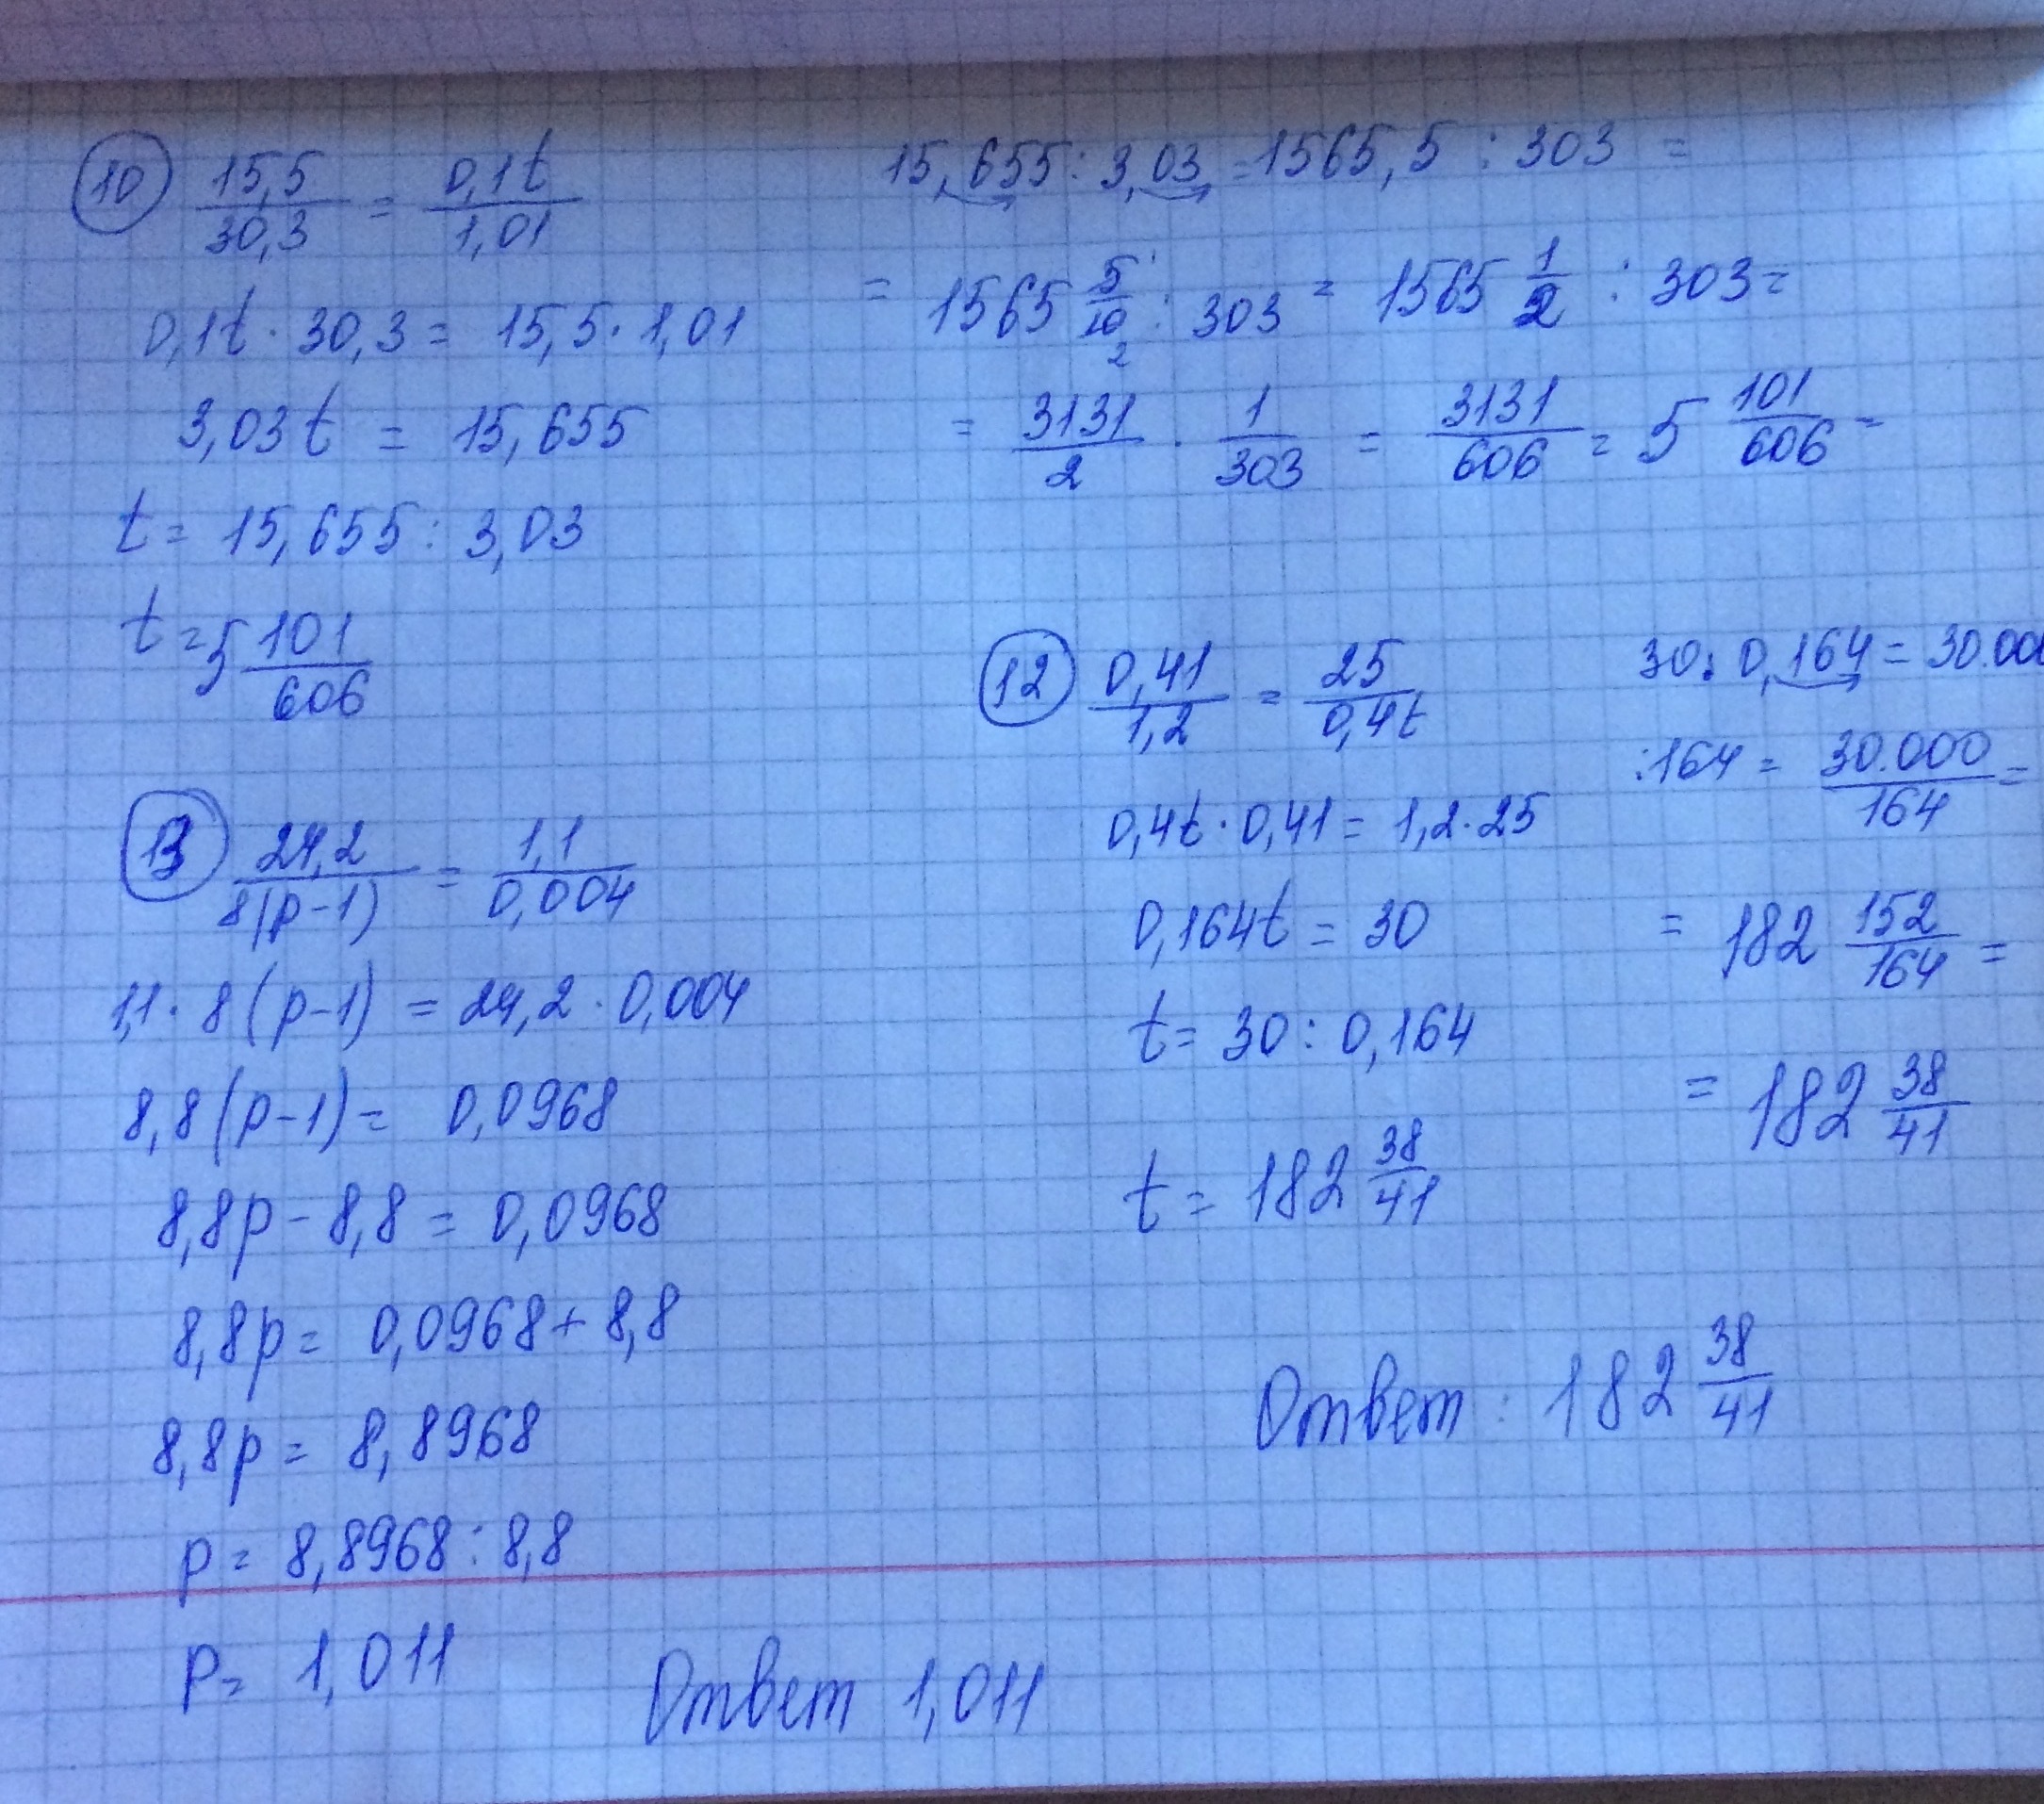 10 15,5/30,3 = 0,1t/1,01
0,1t · 30,3 = 15,5 · 1,01
3,03t = 15,655
t = 15,655 : 3,03
t = 5 101/606
15,655 : 3,03 = 1565,5 : 303 =
= 1565 5/10 2 : 303 = 1565 1/2 : 303 =
= 3131/2 · 1/303 = 3131/606 = 5 101/606 =
12 0,41/1,2 = 25/0,4t
0,4t · 0,41 = 1,2 · 25
0,164t = 30
t = 30 : 0,164
t = 182 38/41
30 : 0,164 = 30.000
: 164 = 30.000/164 =
= 182 152/164 =
= 182 38/41
Ответ : 182 38/41
13 24,2/8(p-1) = 1,1/0,004
1,1 · 8(p-1) = 24,2 · 0,004
8,8(p-1) = 0,0968
8,8p - 8,8 = 0,0968
8,8p = 0,0968 + 8,8
8,8p = 8,8968
p = 8,8968 : 8,8
p = 1,011
Ответ 1,011